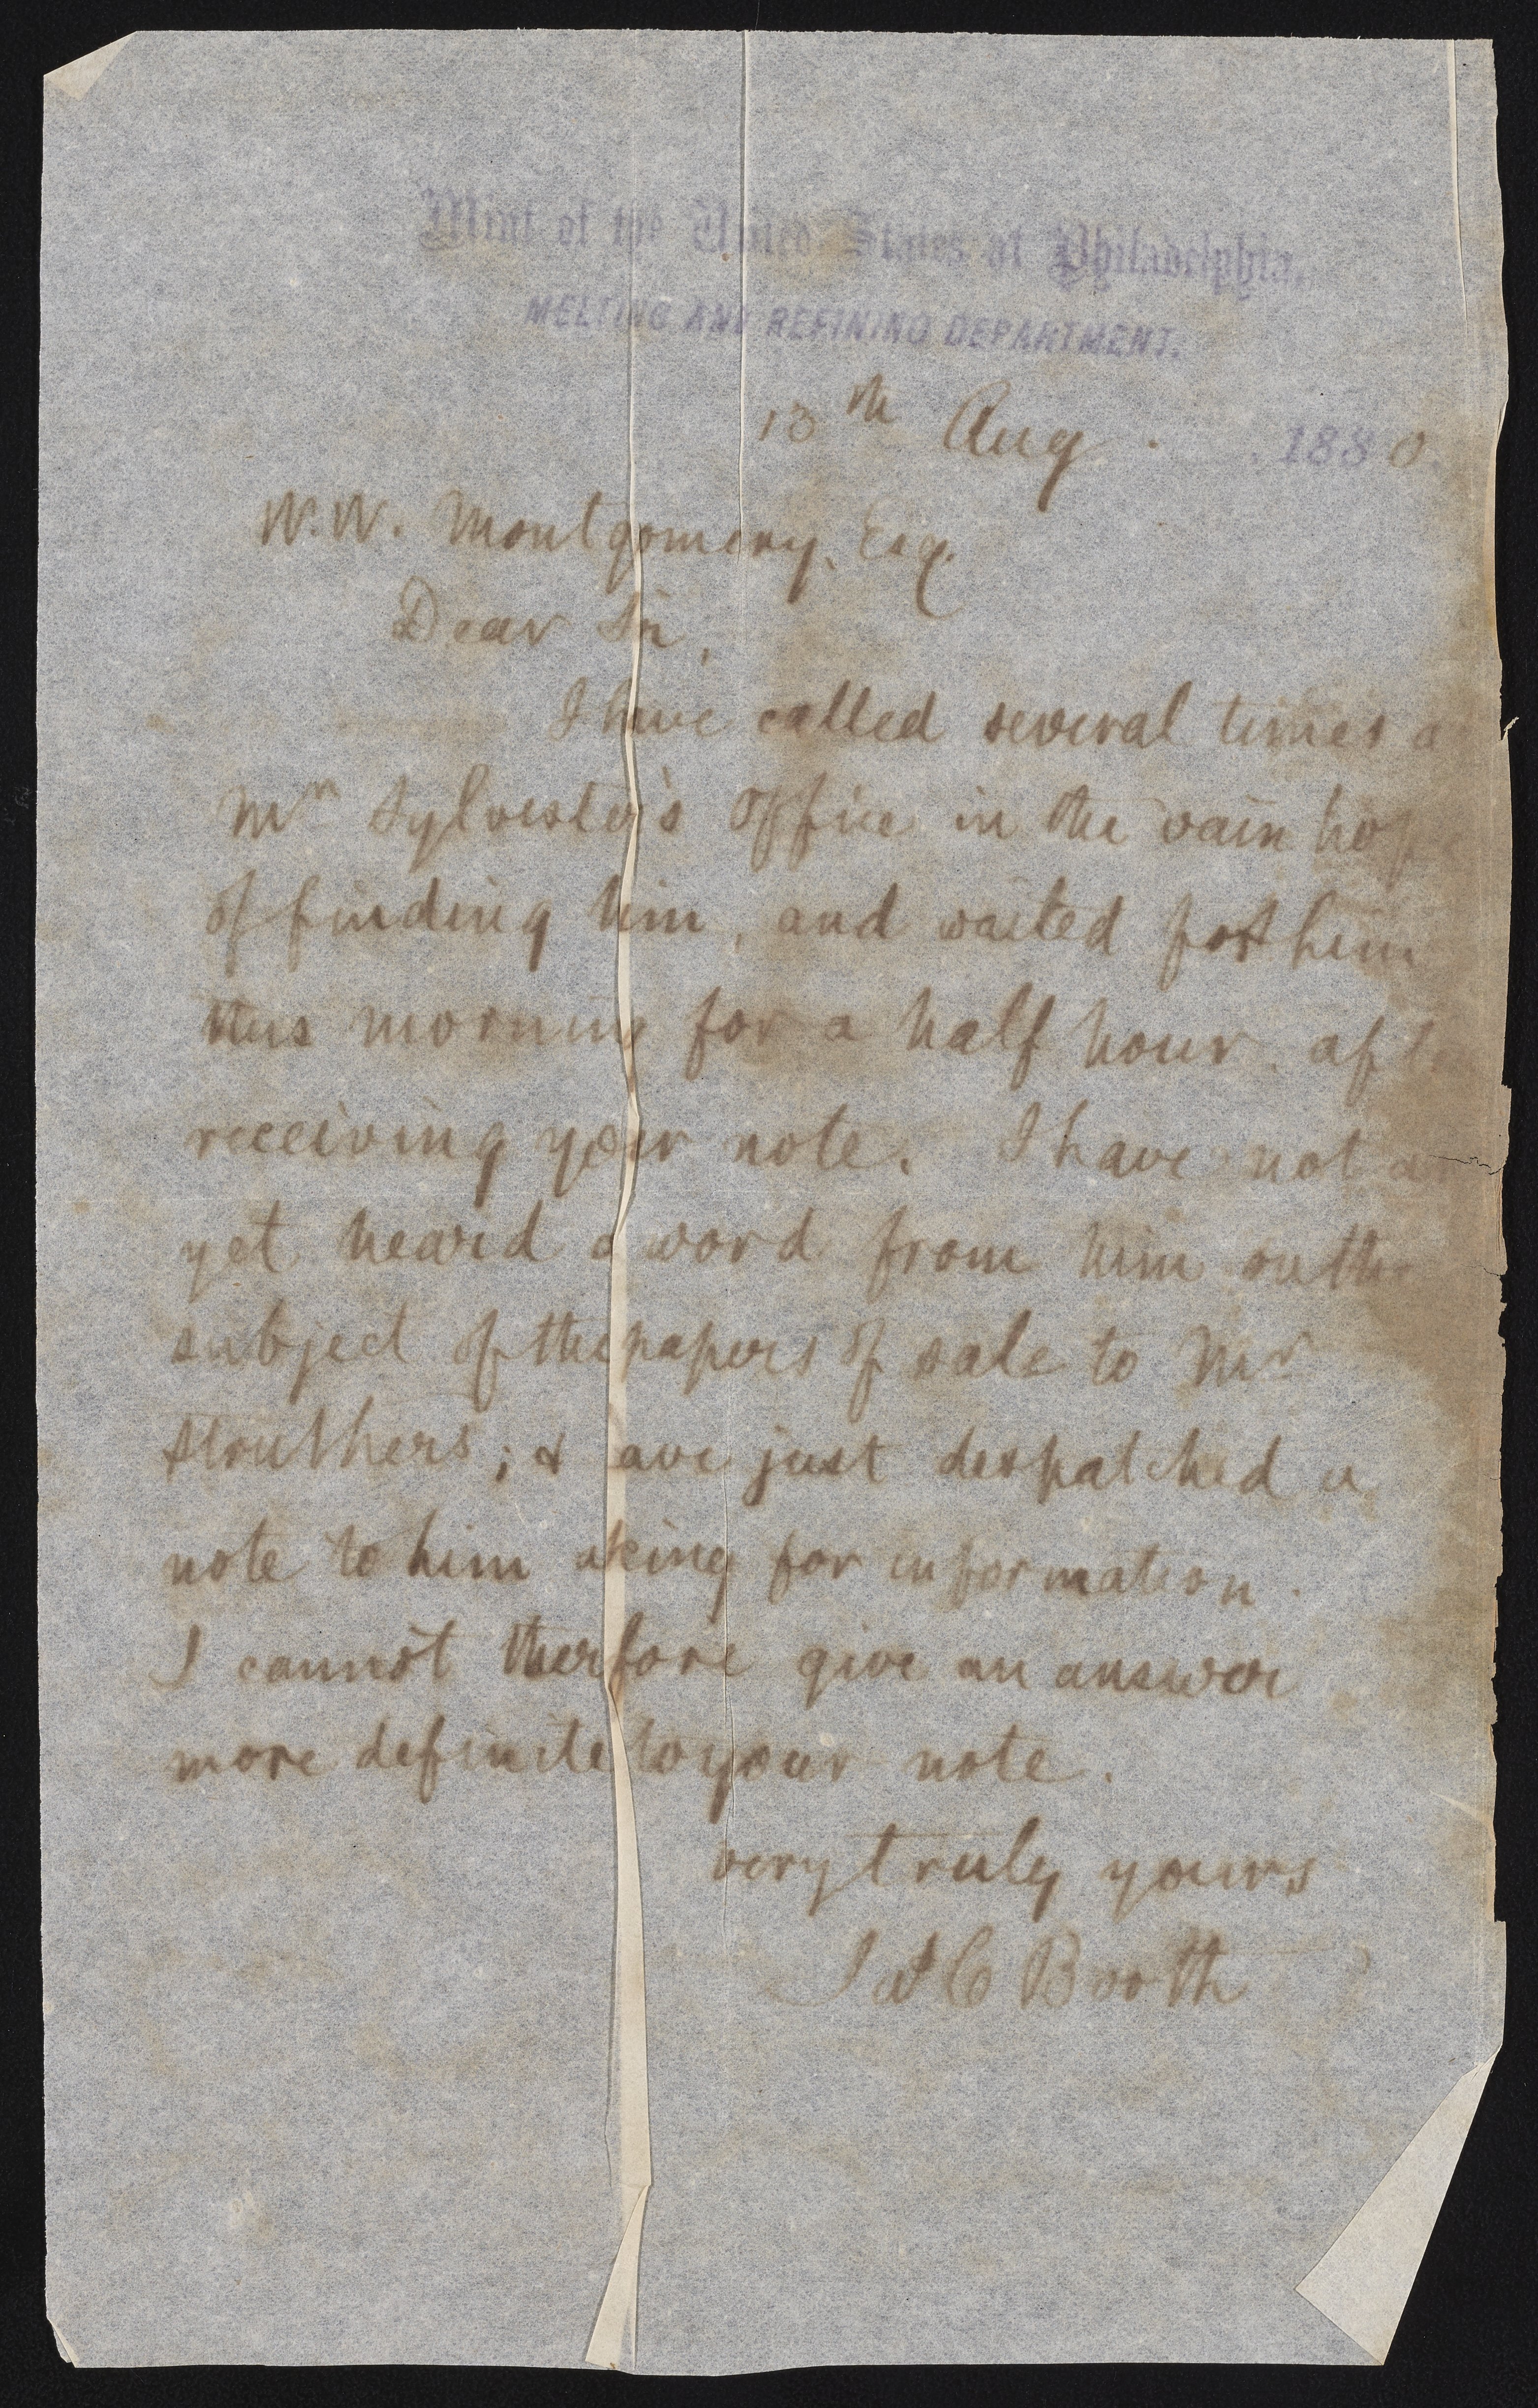 Mint of the United States at Philadelphia,
MELTING AND REFINING DEPARTMENT.
13th Aug. 1880.
W. W. Montgomery, Esq.
Dear Sir,
I have called several times a
Mr Sylvester's office in the vain hope
of finding him, and waited for him
this morning for a half hour, aft
receiving your note. I have not a
yet heard a word from him on the
subject of the papers of sale to Mr
Struthers; & ave just despatched a
note to him asking for information.
I cannot therfore give an answer
more definite to your note.
very truly yours
Jas C Booth